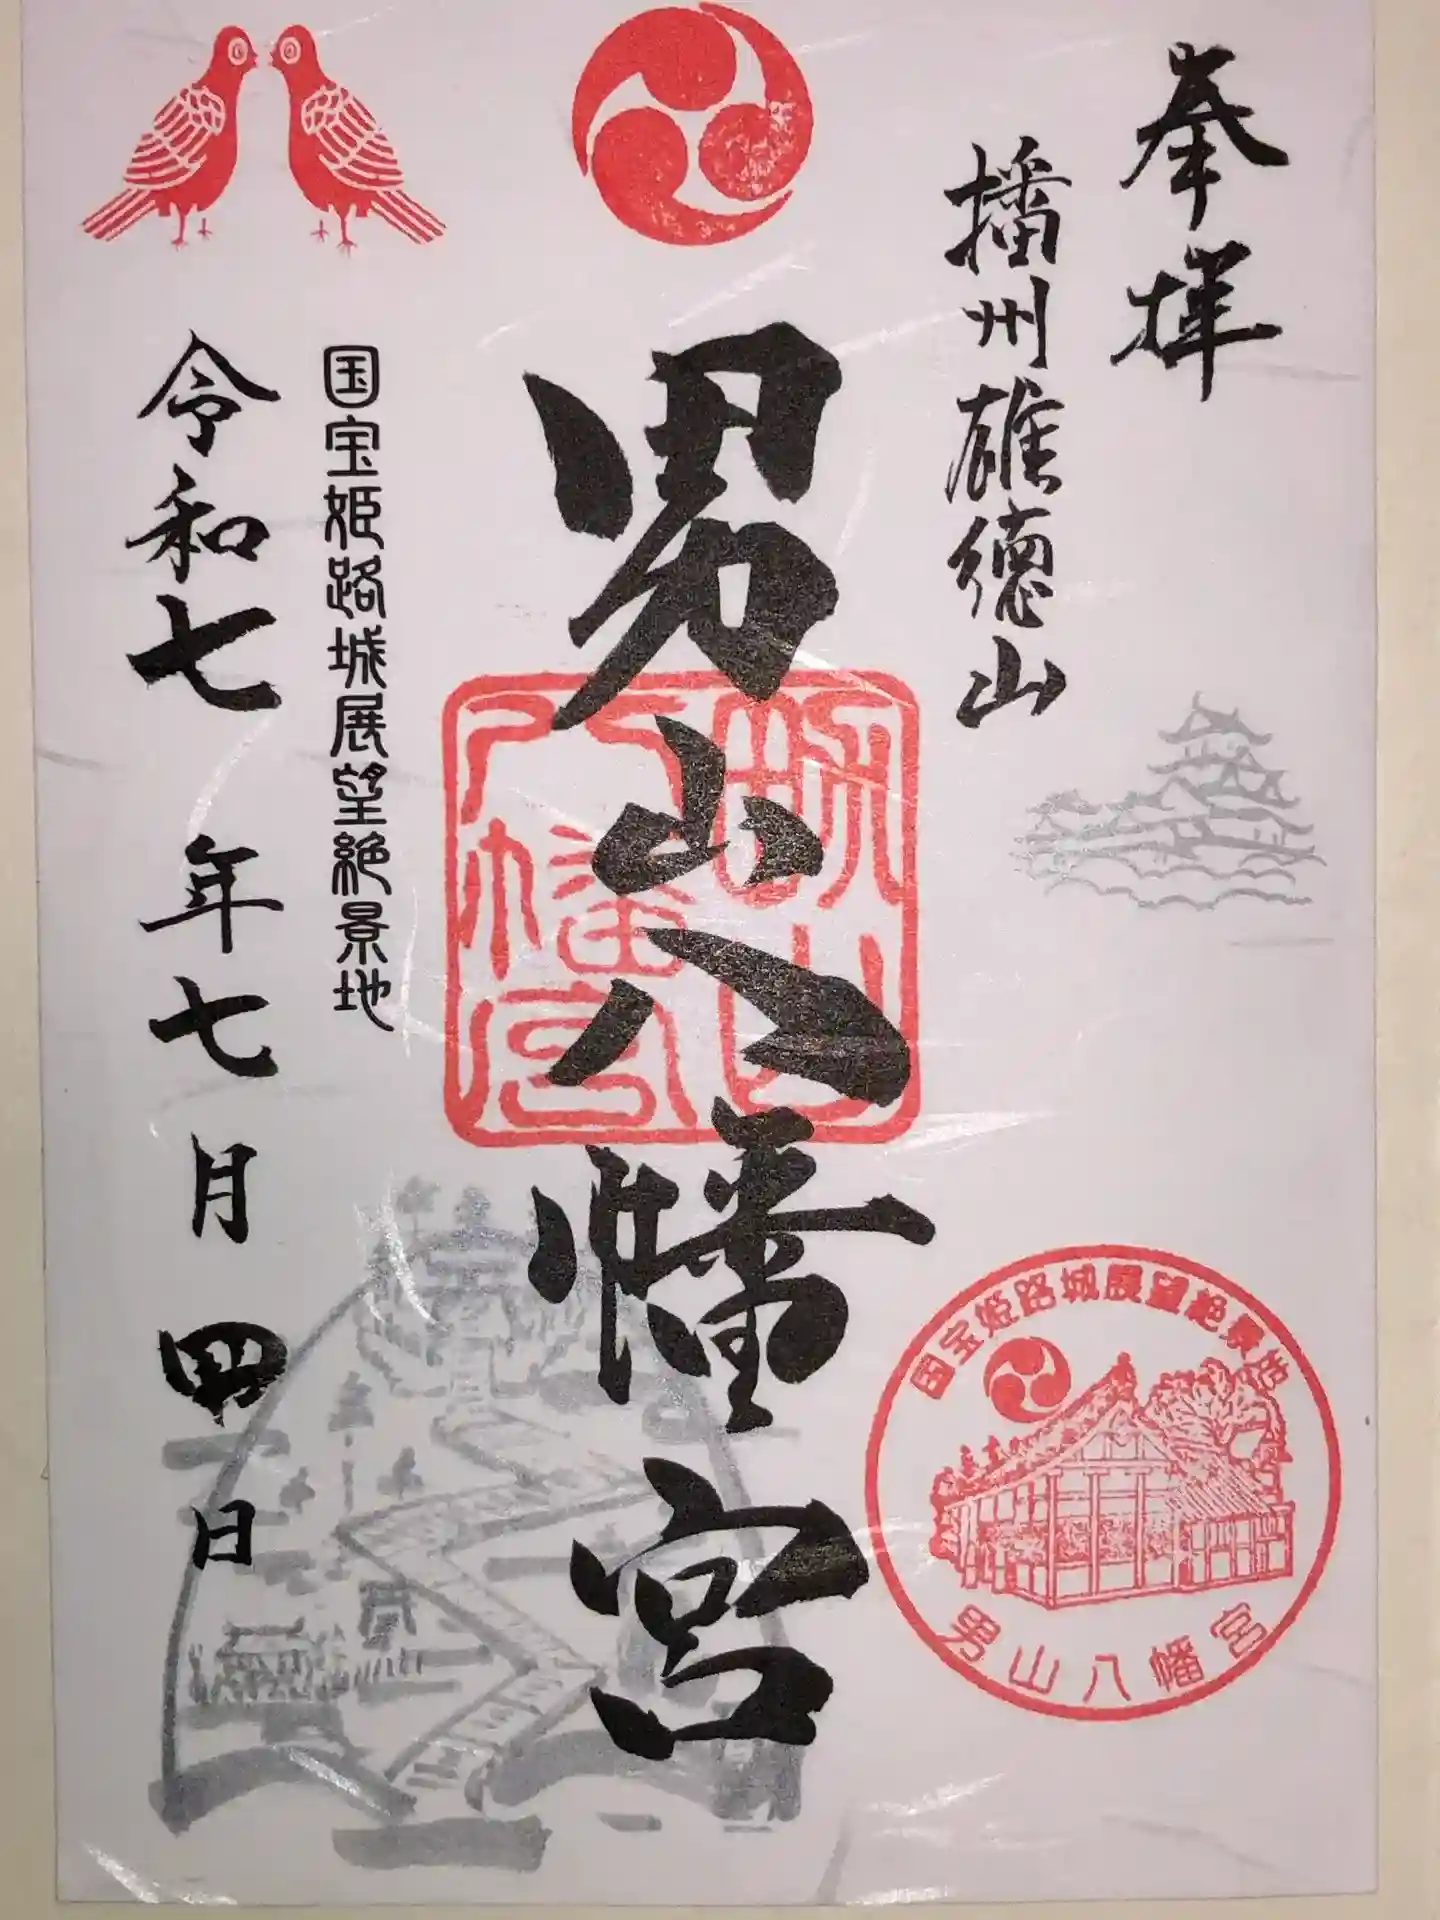 奉拝
播州雄徳山
男山八幡宮
男山八幡宮
国宝姫路城展望絶景地
令和七年七月四日
国宝姫路城展望絶景地
男山八幡宮